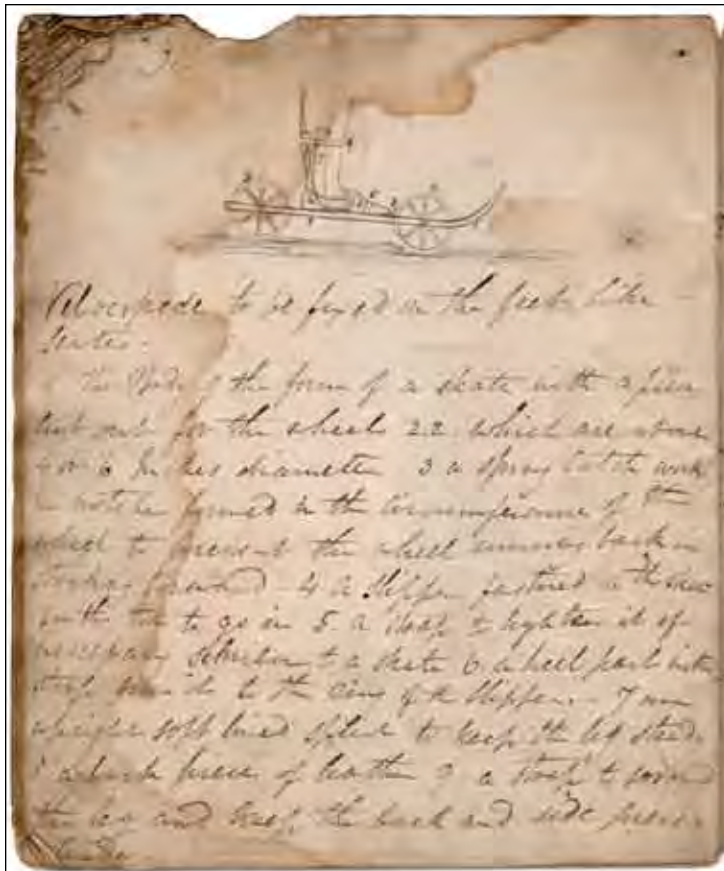 Velocipede to be fixed on the feet like
skates.
1 The Body of the form of a skate with a piece
cut out for the wheels 2.2. which are above
4 or 6 Inches diameter 3 a spring catch work
in notches formed in the circumference of the
wheel to prevent the wheel running back in
striking forward - 4 a slipper fastened to the
with toe to go in 5. a strap to tighten it if
necessary to a skate 6. a heel part with
strap to the of the slipper. - 7 an
upright soft lined splint to keep the leg steady
8 a back piece of leather 9 a strap to
the leg and keep the back and side pieces